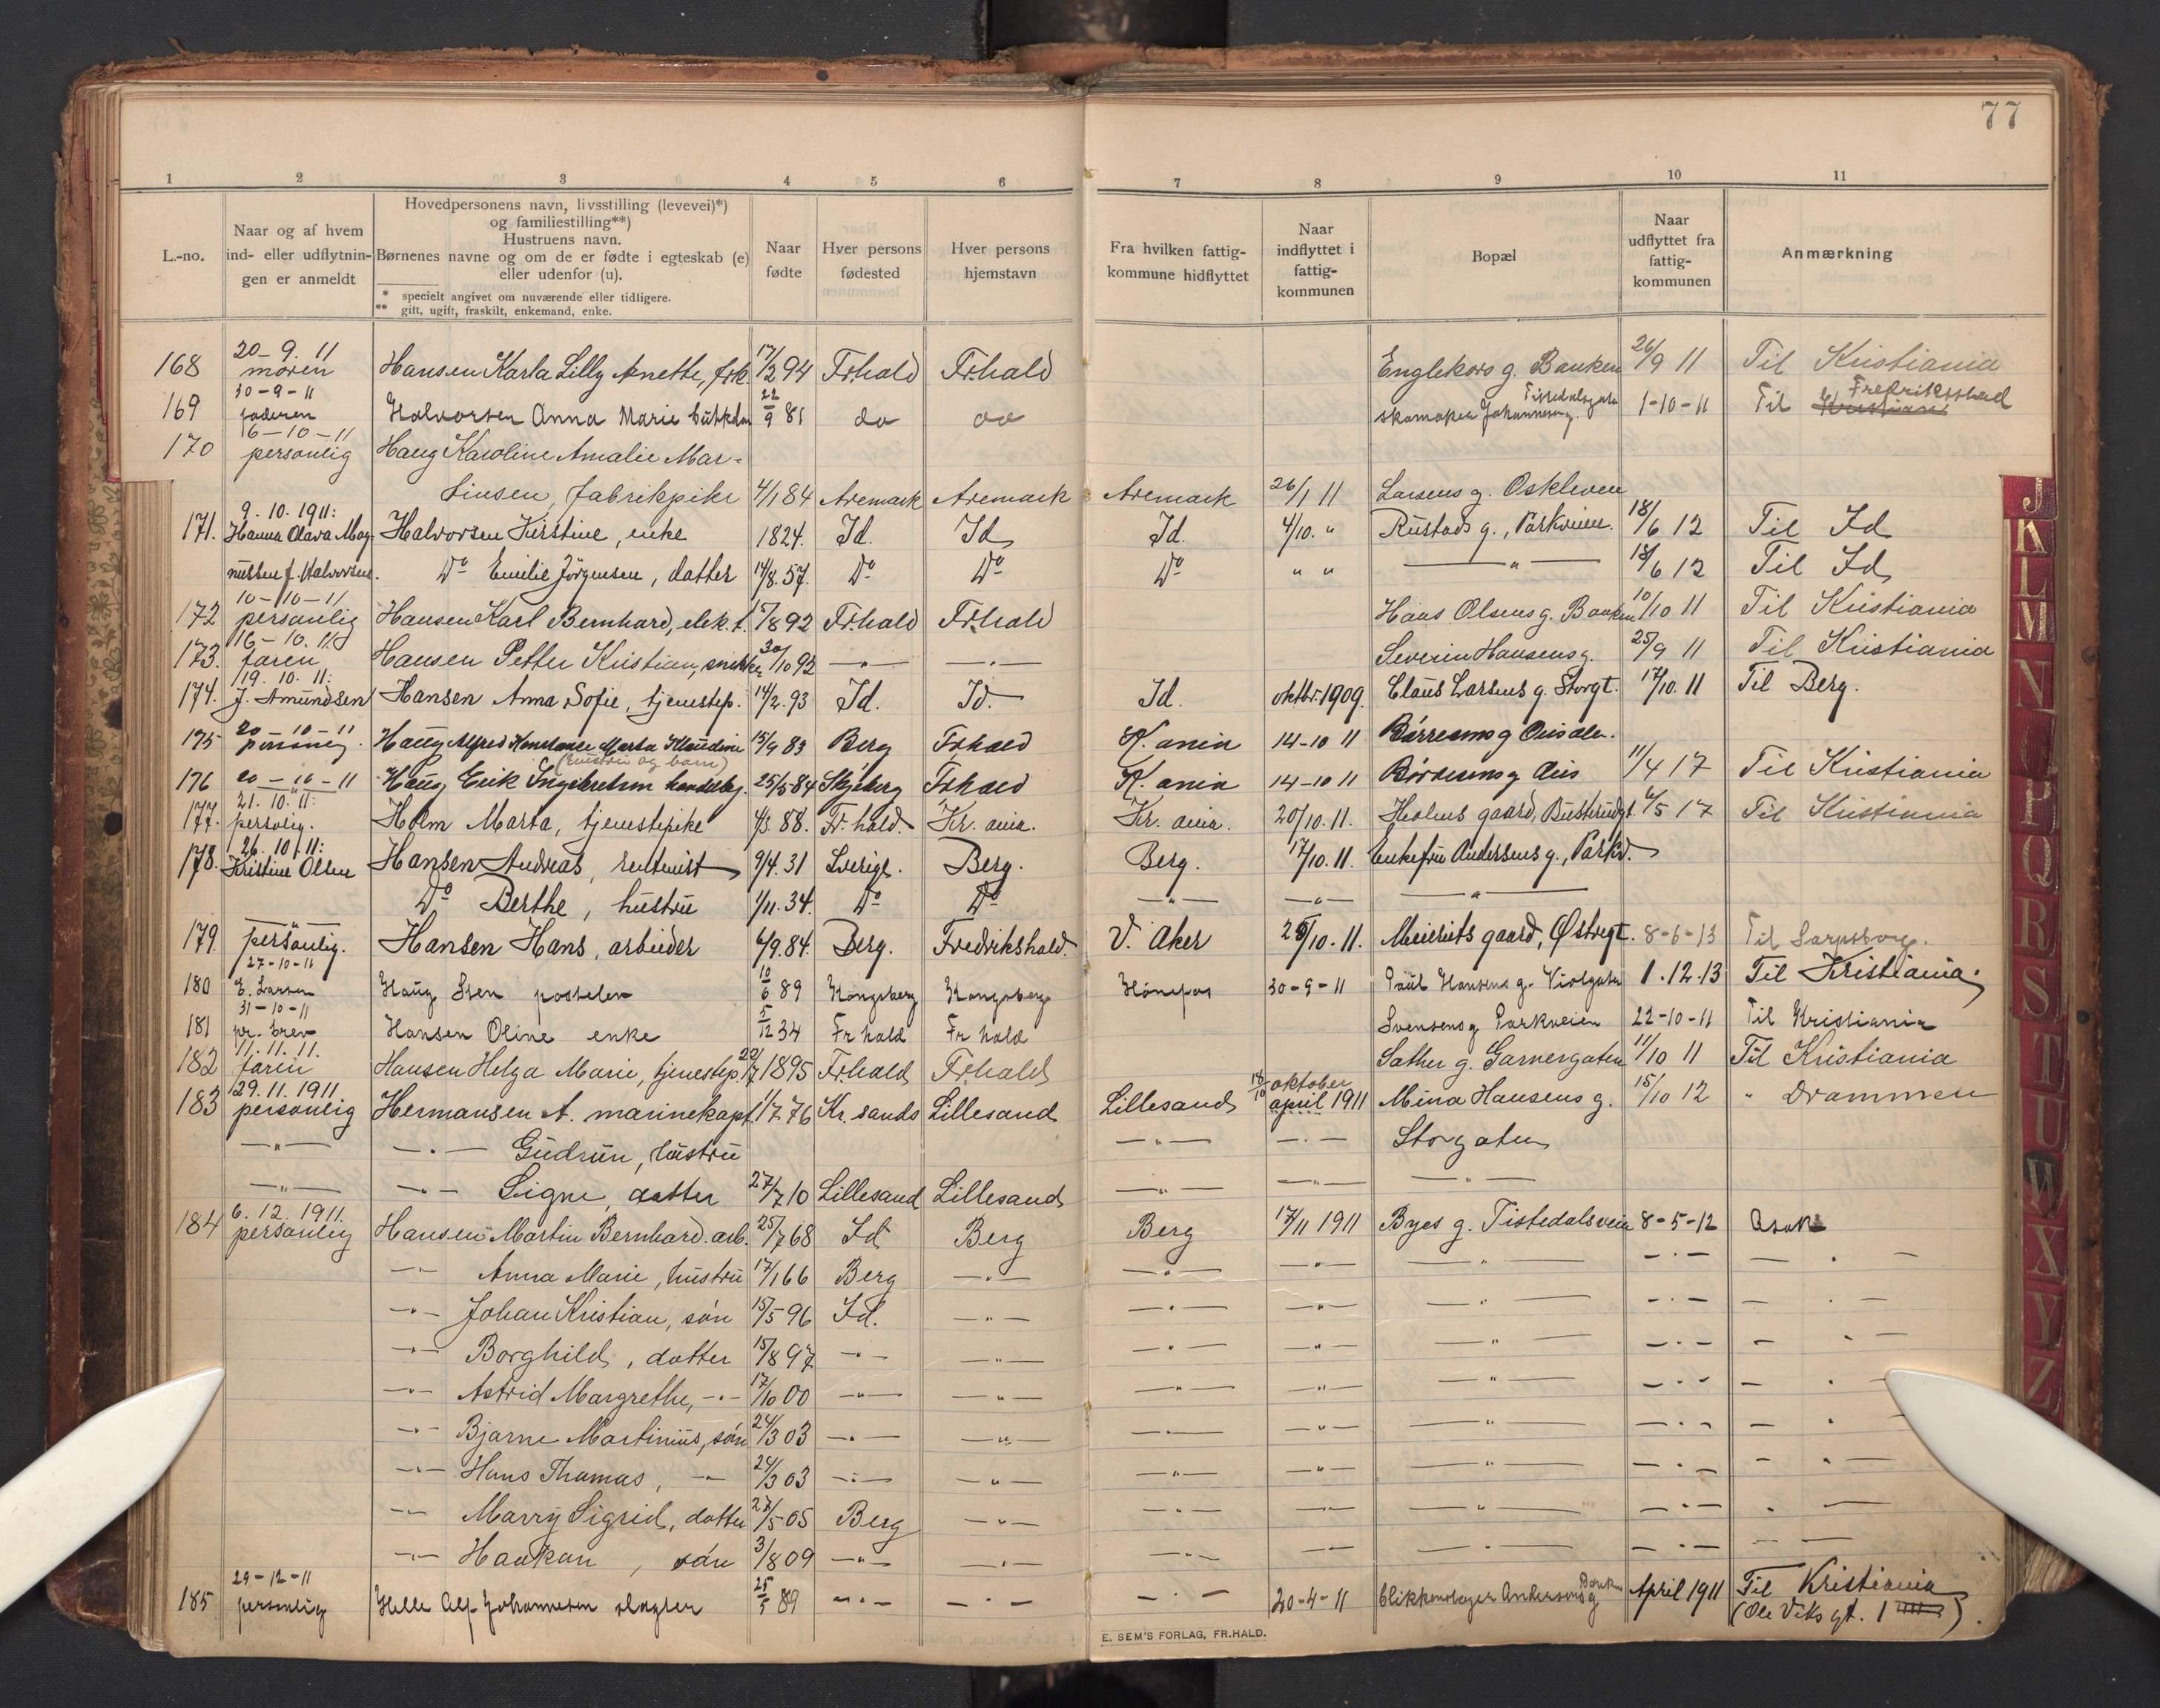 77
1 2 3 4 5 6 7 8 9 10 11
L.-no. | Naar og af hvem ind- eller udflytnin-gen er anmeldt | Hovedpersonens navn, livsstilling (levevei)*) og familiestilling**) Hustruens navn. Børnenes navne og om de er fødte i egteskab (e) eller udenfor (u). | Naar fødte | Hver persons fødested | Hver persons hjemstavn | Fra hvilken fattig-kommune hidflyttet | Naar indflyttet i fattig-kommunen | Bopæl | Naar udflyttet fra fattig-kommunen | Anmærkning
* specielt angivet om nuværende eller tidligere.
** gift, ugift, fraskilt, enkemand, enke.
168 20-9.11 moren Hansen Karla Lilly Anette, frk. 17/2 94 Fr.hald Fr.hald Englekors g. Banken 26/9 11 Til Kristiania
169 30-9-11 faderen Halvorsen Anna Marie 22/9 81 do do skomaker Johannesen g. Tistedalsgata 1-10-11 Til Fredriksstad
170 16-10-11 personlig Haug Karoline Amalie Mar-
tinsen, fabrikpike 4/1 84 Aremark Aremark Aremark 26/1 11 Larsens g. Oskleven
171. 9.10.1911: Hanna Olava Mag- Halvorsen Kirstine, enke 1824. Id. Id Id. 4/10. " Rustads g., Parkveien. 18/6 12 Til Id
nussen f. Halvorsen. Do Emilie Jörgensen, datter 14/8. 57. Do Do Do " " — " — 18/6 12 Til Id
172 10-10-11 personlig Hansen Karl Bernhard, elek. 17/8 92 Fr.hald Fr.hald Hans Olsens g. Banken 10/10 11 Til Kristiania
173. 16-10.11 faren Hansen Petter Kristian, snekker 30/10 92 — " — — " — Severin Hansens g. 25/9 11 Til Kristiania
174. 19.10.11: J. Amundsen Hansen Anna Sofie, tjenestep. 14/2. 93 Id. Id. Id. oktbr. 1909. Claus Larsens g. Storgt. 17/10. 11 Til Berg.
175 20-10-11 personlig Haug Alfred Konstance Marta Klaudine 15/9 83 Berg Frhald K.ania 14-10 11 Börresens g
(hustru og barn)
176 20-10-11 Haug Erik Ingebretsen handelsbg. 25/5 84 Skjeberg Frhald K.ania 14-10 11 Börresens g 11/4 17 Til Kristiania
177. 21.10.11: persolig. Holm Marta, tjenestepike 4/3. 88. Fr.hald. Kr.ania. Kr.ania. 20/10. 11. Holms gaard, 6/5 17 Til Kristiania
178. 26.10.11: Kristine Olsen Hansen Andreas, rentenist 9/4. 31 Sverige. Berg. Berg. 17/10. 11. Enkefru Andersens g., Parkv.
Do Berthe, hustru 1/11. 34. Do Do — " — — " — — " —
179. — " — personlig. Hansen Hans, arbeider 6/9. 84. Berg. Fredrikshald. V. Aker 25/10. 11. Meieriets gaard, Østregt. 8-6-13 Til Sarpsborg.
180 27-10-11 E. Larsen Haug Sten 10/6 89 Kongsberg Kongsberg Hönefos 30-9-11 Paul Hansens g. Violgaten 1.12.13 Til Kristiania.
181 31-10-11 pr. brev Hansen Oline enke 5/12 34 Fr hald Fr hald Svensens g Parkveien 22-10-11 Til Kristiania
182 11.11.11. faren Hansen Helga Marie, tjenestep. 22/7 1895 Fr.hald Fr.hald Sather g. Garvergaten 11/10 11 Til Kristiania
183 29.11.1911 personlig Hermansen A. marinekapt. 1/7 76 Kr.sands Lillesand Lillesand 18/10 oktober april 1911 Mina Hansens g. 15/10 12 " Drammen
— " — — " — Gudrun, hustru — " — — " — Storgaten
— " — — " — Signe, datter 27/7 10 Lillesand Lillesand — " — — " — — " —
184 6.12.1911. personlig Hansen Martin Bernhard. arb. 25/7 68 Id Berg Berg 17/11 1911 Byes g. Tistedalsveien 8-5-12 Asak
— " — Anna Marie, hustru 17/1 66 Berg — " — — " — — " — — " — — " — — " —
— " — Johan Kristian, sön 15/5 96 Id. — " — — " — — " — — " — — " — — " —
— " — Borghild, datter 15/8 97 — " — — " — — " — — " — — " — — " — — " —
— " — Astrid Margrethe, — " — 17/10 00 — " — — " — — " — — " — — " — — " — — " —
— " — Bjarne Martinius, sön 24/3 03 — " — — " — — " — — " — — " — — " — — " —
— " — Hans Thomas, — " — 24/3 03 — " — — " — — " — — " — — " — — " — — " —
— " — Marry Sigrid, datter 27/5 05 Berg — " — — " — — " — — " — — " — — " —
— " — Haakon, sön 3/8 09 — " — — " — — " — — " — — " — — " — — " —
185 29-12-11 personlig Helle Alf Johannesen slagter 25/5 89 — " — — " — — " — 20-4-11 blikkenslager Andersens g Banken April 1911 Til Kristiania
(Ole Viks gt. 1)
E. SEM'S FORLAG, FR.HALD.
J
K
L
M
N
P
Q
R
S
T
U
W
X
Y
Z